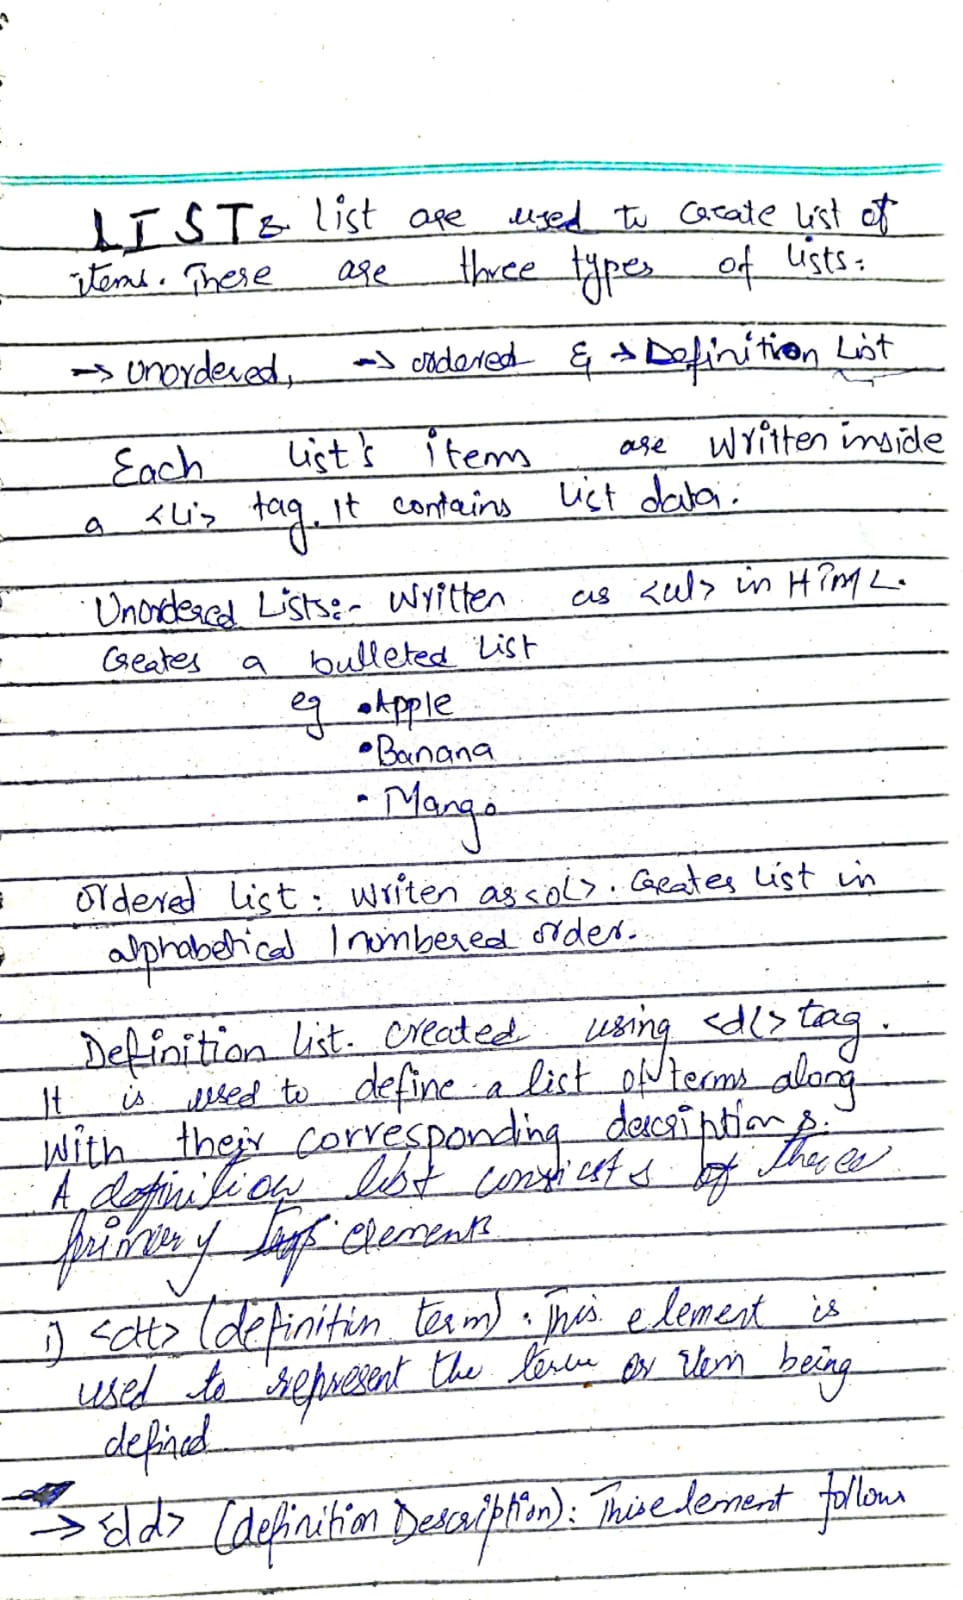 LISTs list are used to create list of
items. These are three types of lists:
→ unordered, → ordered & → Definition List
Each list's items are written inside
a <li> tag. It contains list data.
Unordered Lists:- Written as <ul> in HTML.
Creates a bulleted list
eg • Apple
• Banana
• Mango
Ordered list: Writen as <ol>. Creates list in
alphabetical / numbered order.
Definition list. Created using <dl> tag.
It is used to define a list of terms along
With their corresponding descriptions.
A definition list consists of three
primary tags elements
i) <dt> (definitin term). This element is
used to represent the term or item being
defined
→ <dd> (definition Description): This element follow